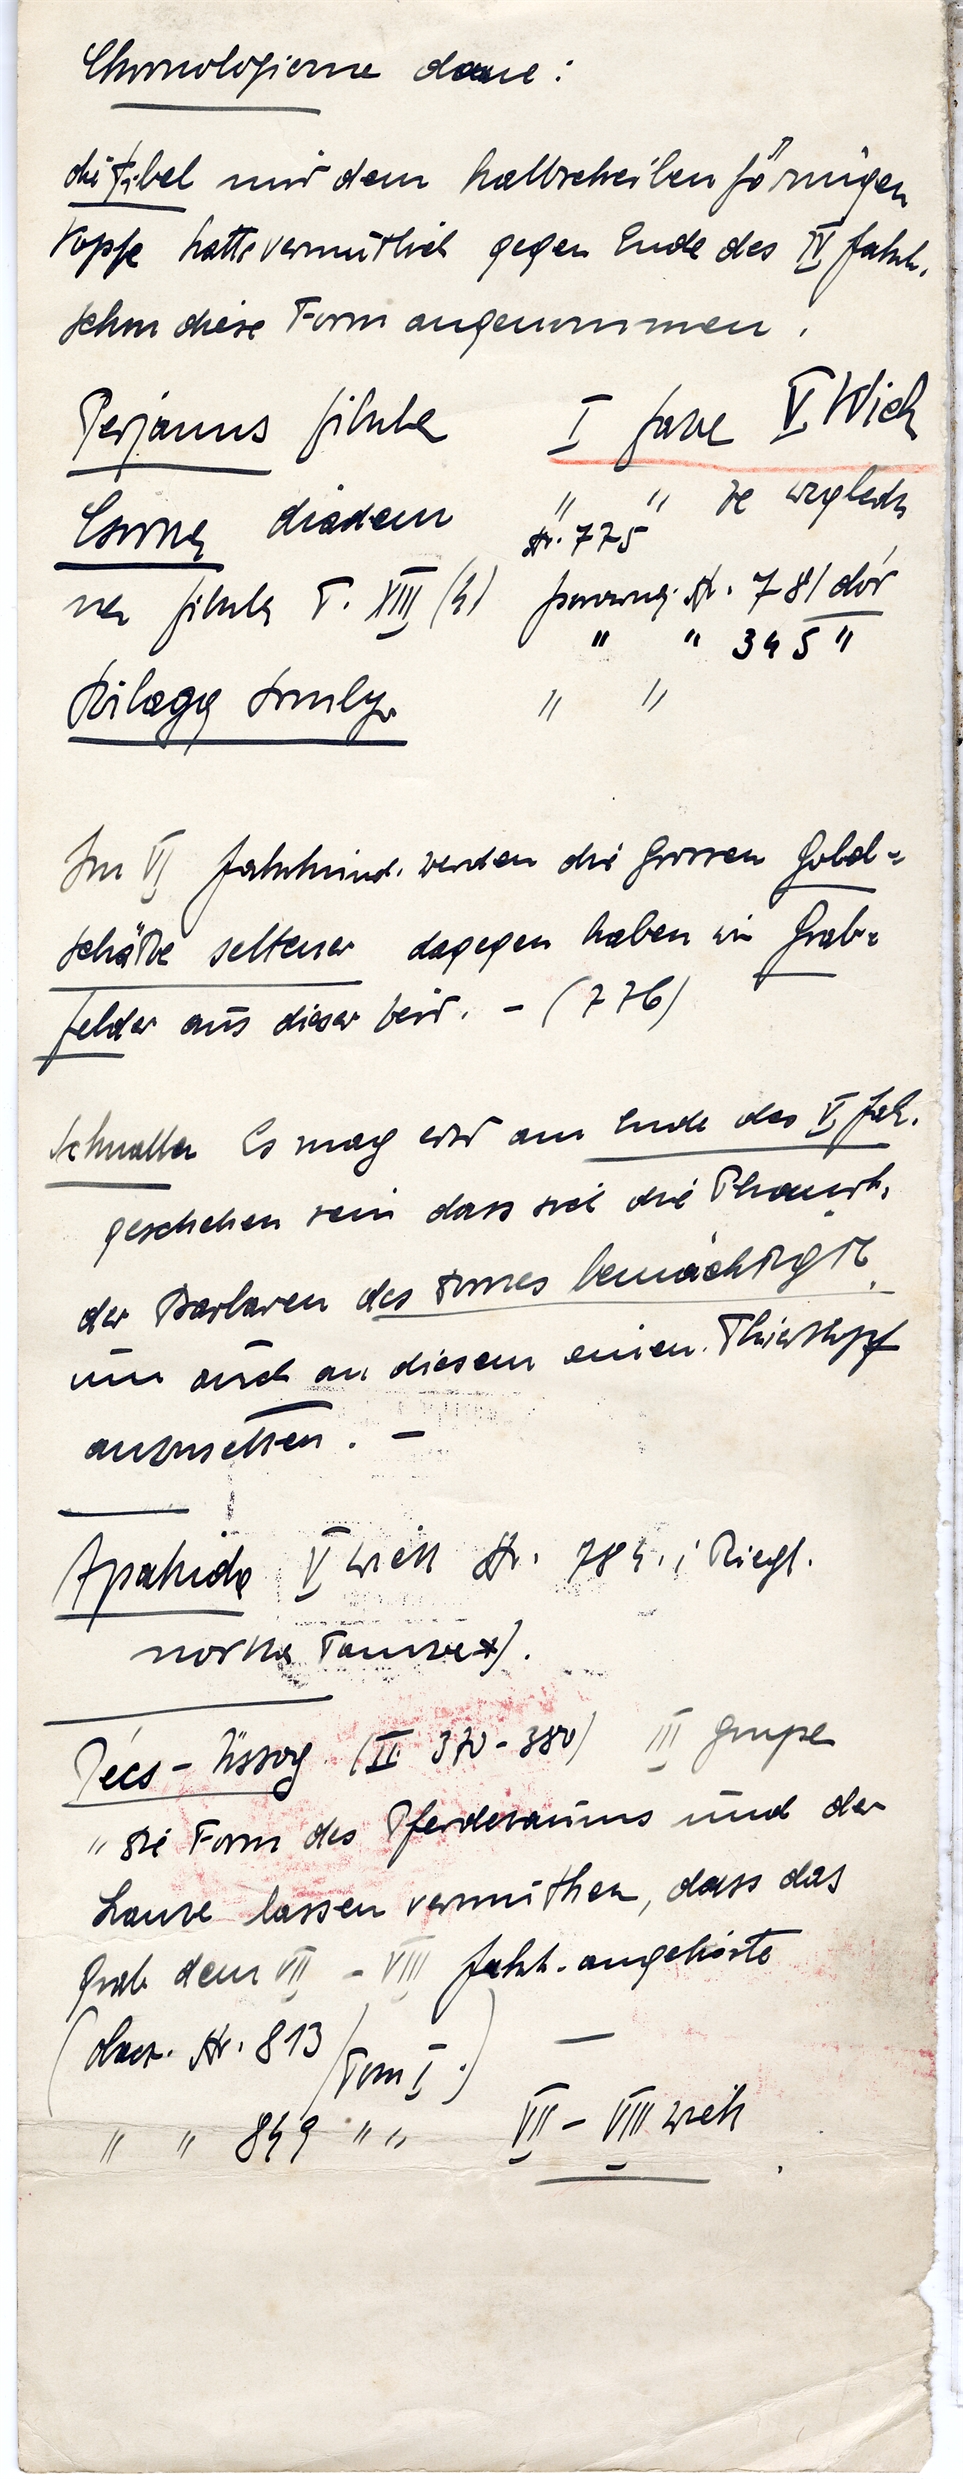 Chronologierne dane:
die Fibel mit dem halbscheibenförmigen
Kopfe hatte vermutlich gegen Ende des IV Jahrh.
schon diese Form angenommen.
Perjamus fibula I fase V. Wiek
Csorna diadem " " ze względu
Str. 775
na fibulę T. XIII (4) porównaj Str. 781 dół
" " 345 "
Szilagy Somlyo " "
Im VI Jahrhund. werden die grossen Gold-
schätze seltener dagegen haben wir Grab-
felder aus dieser Zeit. - (776)
Schnallen Es mag erst am Ende des V Jah.
geschehen sein dass sich die Phantas.
der Barbaren des Dornes bemächtigte
um auch an diesem einen Thierkopf
anzusetzen. -
Apahida V wiek Str. 784. i Riegl.
Pécs-Üszog (II 370-380) III grupa
"Die Form des Pferdezaums und der
Lanze lassen vermuthen, dass das
Grab dem VII - VIII Jahrh. angehörte
(obacz. Str. 813 / Tom I.) -
" " 849 " " VII - VIII wiek